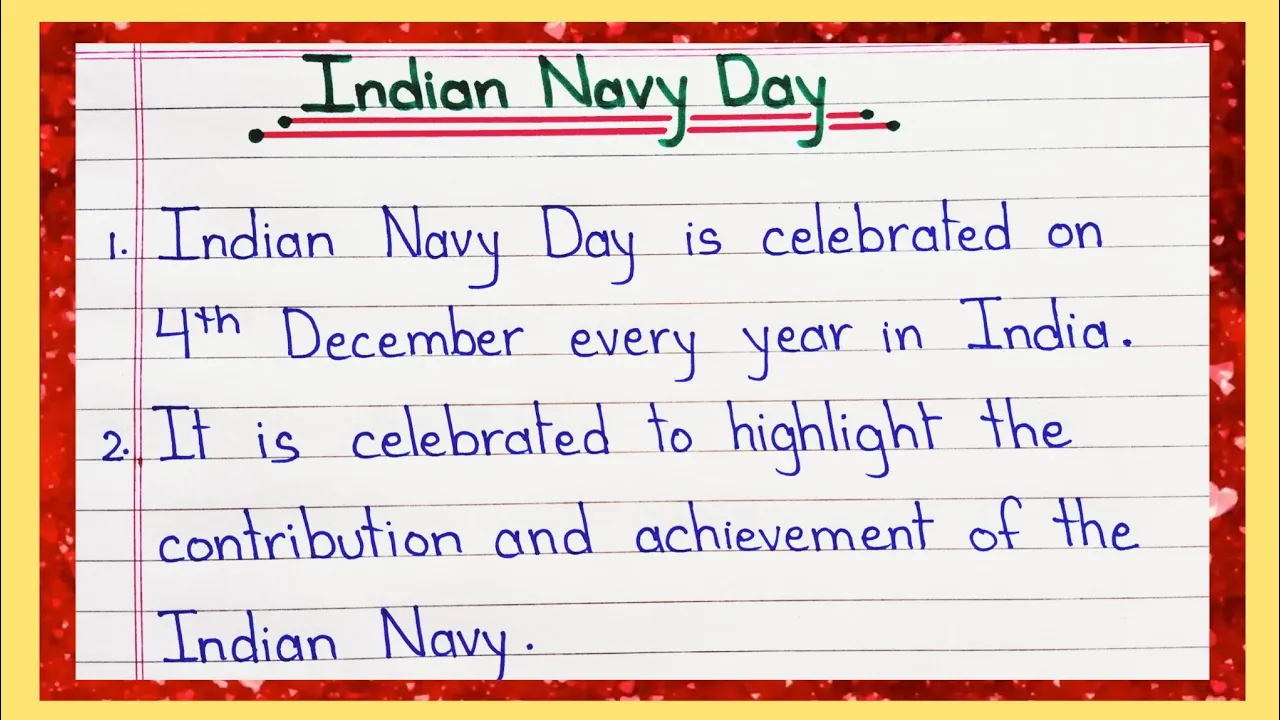 Indian Navy Day
1. Indian Navy Day is celebrated on
4th December every year in India.
2. It is celebrated to highlight the
contribution and achievement of the
Indian Navy.